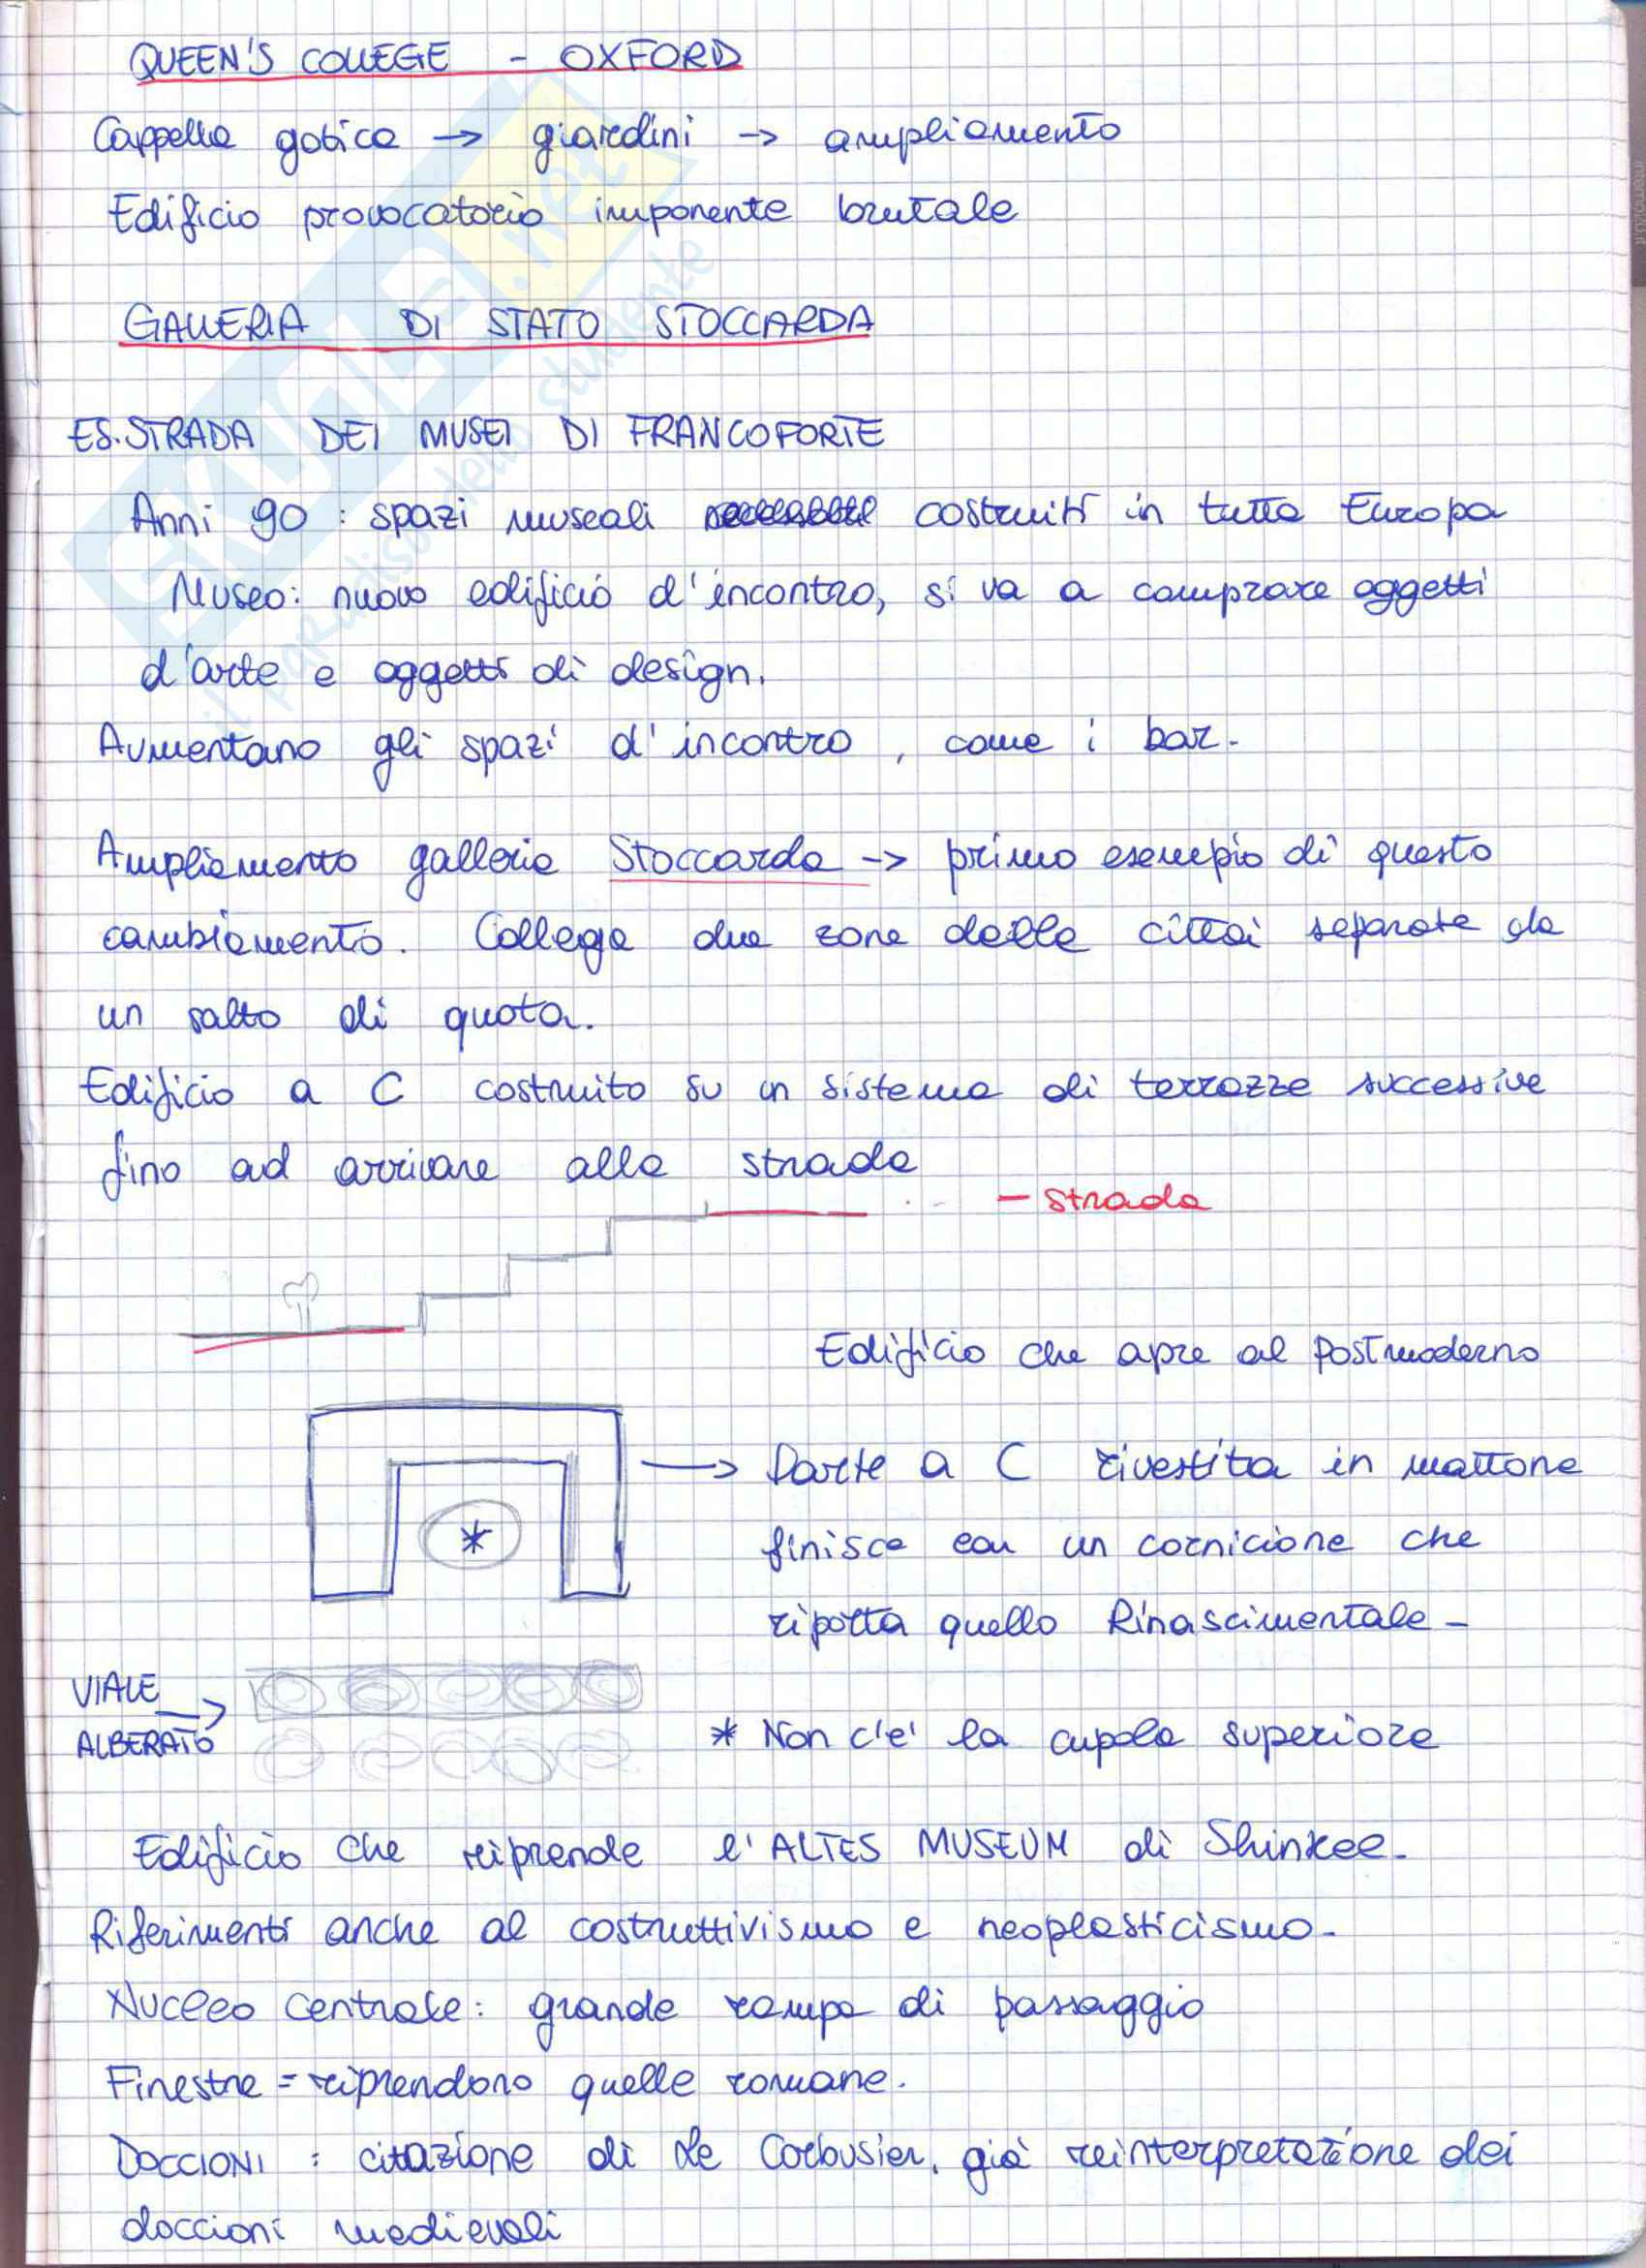 QUEEN'S COLLEGE - OXFORD
Cappella gotica → giardini → ampliamento
Edificio provocatorio imponente brutale
GALLERIA DI STATO STOCCARDA
ES. STRADA DEI MUSEI DI FRANCOFORTE
Anni 90 : spazi museali costruiti in tutta Europa
Museo: nuovo edificio d'incontro, si va a comprare oggetti
d'arte e oggetti di design.
Aumentano gli spazi d'incontro, come i bar.
Ampliamento galleria Stoccarda → primo esempio di questo
cambiamento. Collega due zone della città separate da
un salto di quota.
Edificio a C costruito su un sistema di terrazze successive
fino ad arrivare alla strada
- strada
Edificio che apre al Postmoderno
→ Parte a C rivestita in mattone
finisce con un cornicione che
riporta quello Rinascimentale -
*
VIALE
ALBERATO →
* Non c'e' la cupola superiore
Edificio che riprende l'ALTES MUSEUM di Shinkel.
Riferimenti anche al costruttivismo e neoplasticismo.
Nucleo centrale: grande rampa di passaggio
Finestre = riprendono quelle romane.
DOCCIONI : citazione di Le Corbusier, già reinterpretazione dei
doccioni medievali
SKUOLA.net
il paradiso dello studente